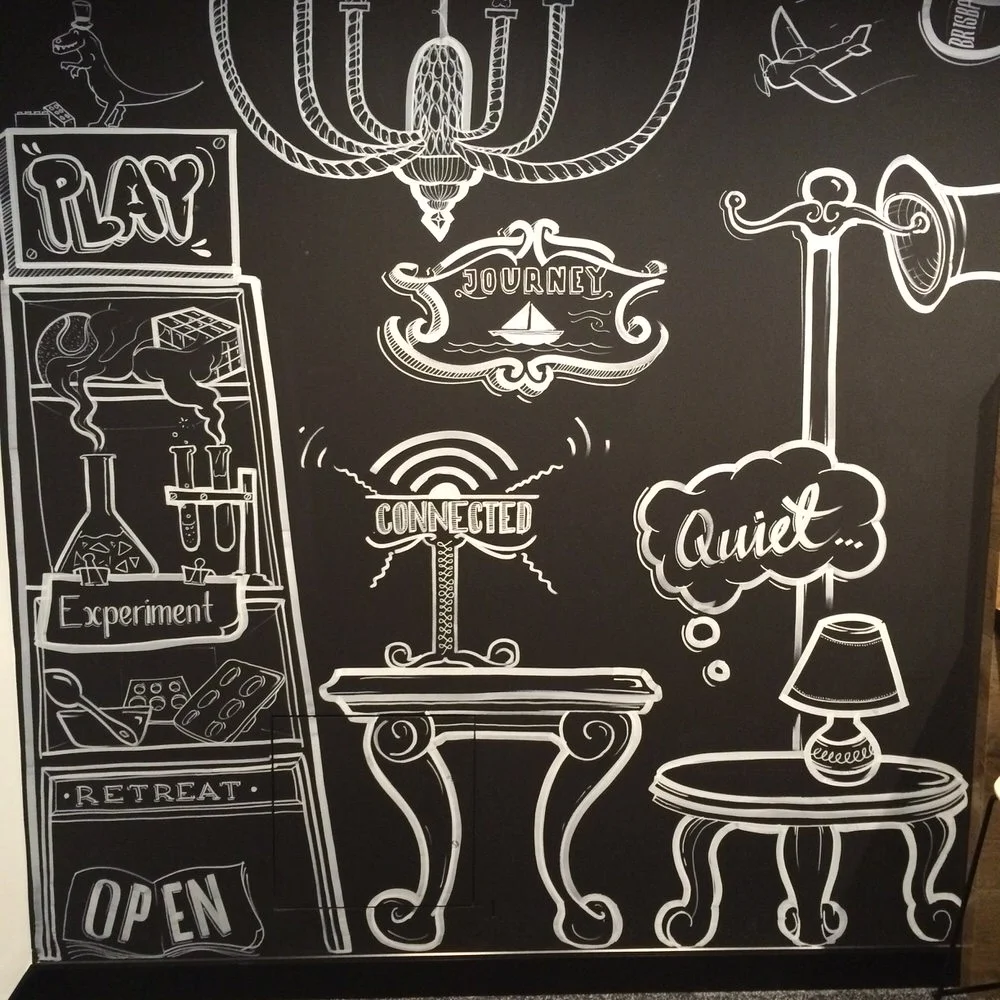 PLAY
JOURNEY
CONNECTED
Quiet...
Experiment
RETREAT
OPEN